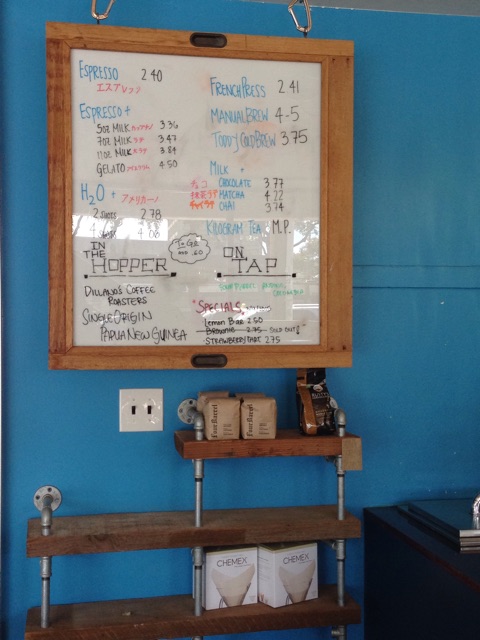 ESPRESSO 2.40
エスプレッソ
ESPRESSO +
5OZ MILK 3.36
7OZ MILK ラテ 3.47
11OZ MILK ラテ 3.84
GELATO 4.50
H2O + アメリカーノ
2 SHOTS 2.78
4 4.08
FRENCH PRESS 2.41
MANUAL BREW 4-5
TODDY COLD BREW 3.75
MILK +
チョコ CHOCOLATE 3.77
抹茶ラテ MATCHA 4.22
チャイラテ CHAI 3.74
KILOGRAM TEA M.P.
TO GO
ADD .60
IN
THE
HOPPER
DILLANOS COFFEE
ROASTERS
SINGLE ORIGIN
PAPUA NEW GUINEA
ON
TAP
*SPECIALS
LEMON BAR 2.50
BROWNIE 2.75 SOLD OUT!
STRAWBERRY TART 2.75
Four Barrel
Four Barrel
CHEMEX
CHEMEX